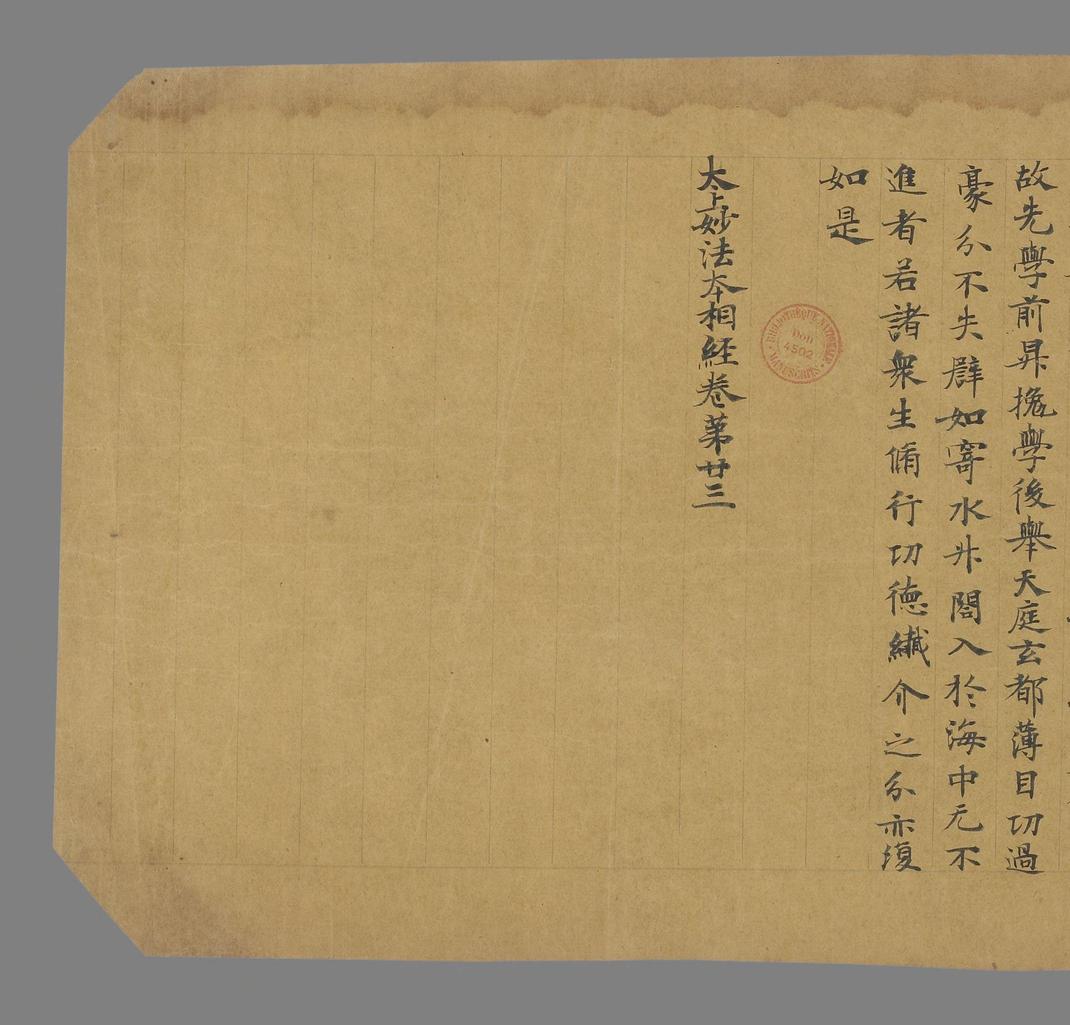 故先學前昇擥學後舉天庭玄都薄目功過
豪分不失辟如寄水升閤入於海中无不
進者若諸衆生脩行功德纎介之分亦復
如是
太上妙法本相經卷第廿三
BIBLIOTHÈQUE NATIONALE
Don
4502
MANUSCRITS